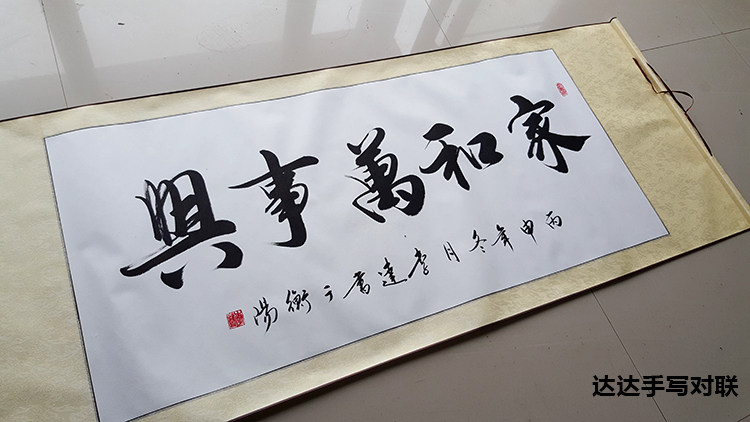 家和萬事興
丙申年冬月李達書于衡陽
达达手写对联